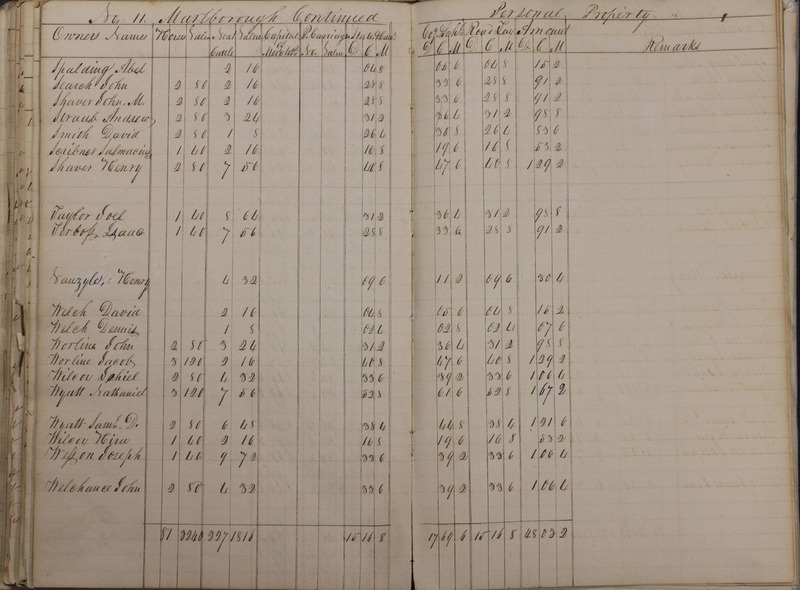 No. 11. Marlborough Continued Personal Property.
Owners Names Horses Value Neat Cattle Value Capital Merch &c P. Carriages No. Value State & Canal D C M Co. & Schl. D C M Road Tax D C M Amount D C M Remarks
Spalding Abel 2 16 04 8 05 6 04 8 15 2
Search John 2 80 2 16 28 8 33 6 28 8 91 2
Shaver John. M. 2 80 2 16 28 8 33 6 28 8 91 2
Straub Andrew 2 80 3 24 31 2 36 4 31 2 98 8
Smith David 2 80 1 8 26 4 30 8 26 4 83 6
Scribner 1 40 2 16 16 8 19 6 16 8 53 2
Shaver Henry 2 80 7 56 40 8 47 6 40 8 1 29 2
Taylor Joel 1 40 8 64 31 2 36 4 31 2 98 8
Isaac 1 40 7 56 28 8 33 6 28 8 91 2
Vanzyle, Henry 4 32 09 6 11 2 09 6 30 4
Welch David 2 16 04 8 05 6 04 8 15 2
Welch Dennis 1 8 02 4 02 8 02 4 07 6
Worline John 2 80 3 24 31 2 36 4 31 2 98 8
Worline Jacob 3 120 2 16 40 8 47 6 40 8 1 29 2
Wilcox 2 80 4 32 33 6 39 2 33 6 1 06 4
Wyatt Nathaniel 3 120 7 56 52 8 61 6 52 8 1 67 2
Wyatt Saml. D. 2 80 6 48 38 4 44 8 38 4 1 21 6
Wilcox Hira 1 40 2 16 16 8 19 6 16 8 53 2
Wesson Joseph 1 40 9 72 33 6 39 2 33 6 1 06 4
Welchance John 2 80 4 32 33 6 39 2 33 6 1 06 4
81 3240 227 1816 15 16 8 17 69 6 15 16 8 48 03 2